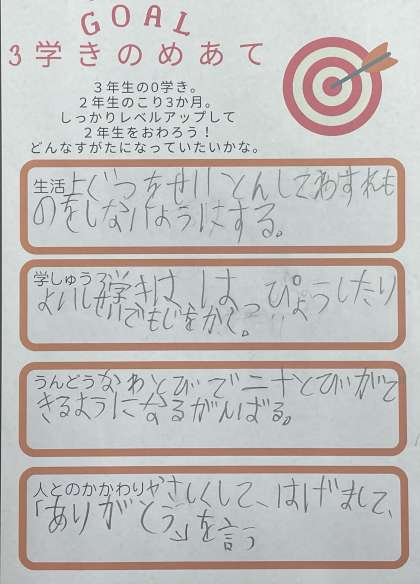 GOAL
3学きのめあて
3年生の0学き。
2年生のこり3か月。
しっかりレベルアップして
2年生をおわろう!
どんなすがたになっていたいかな。
生活 上ぐつをせいとんしてわすれも
のをしないようにする。
学しゅう 学きは、はっぴょうしたり
よいしせいでもじをかく。
うんどう なわとびで二十とびがで
きるようになるがんばる。
人とのかかわり やさしくして、はげまして、
「ありがとう」を言う